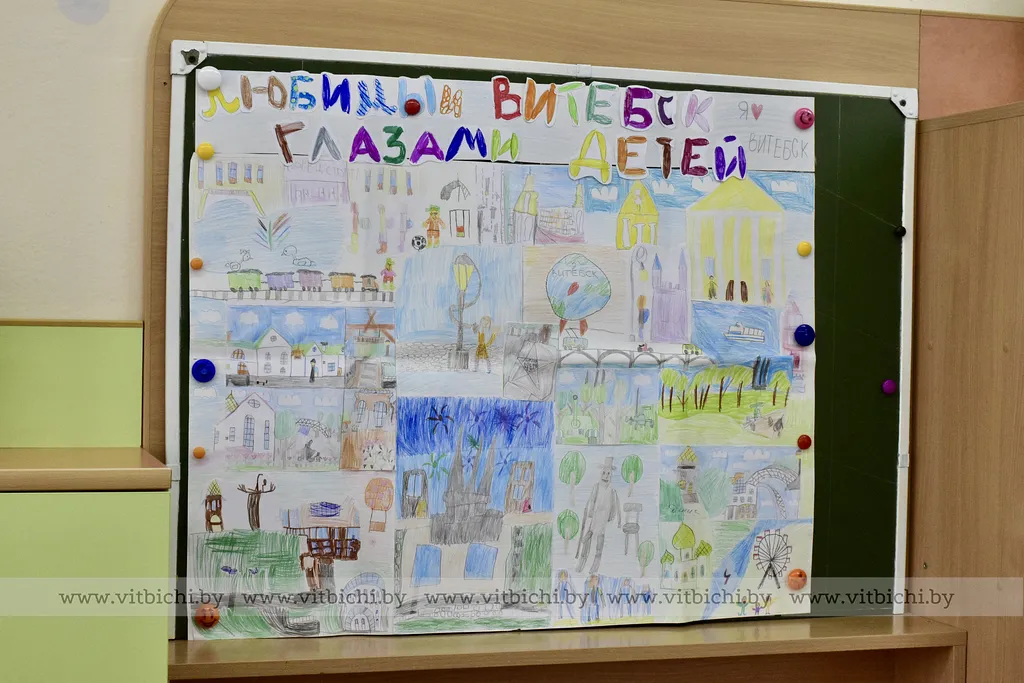 ЛЮБИМЫЙ ВИТЕБСК
ГЛАЗАМИ ДЕТЕЙ
Я♥
ВИТЕБСК
ВИТЕБСК
www.vitbichi.by www.vitbichi.by www.vitbichi.by www.vitbichi.by www.vitbichi.by www.vitbichi.by